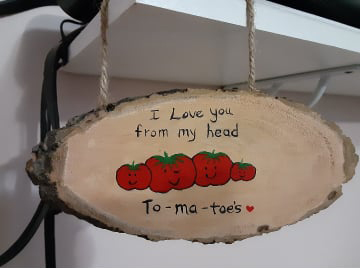 I Love you
from my head
To-ma-toe's ♥